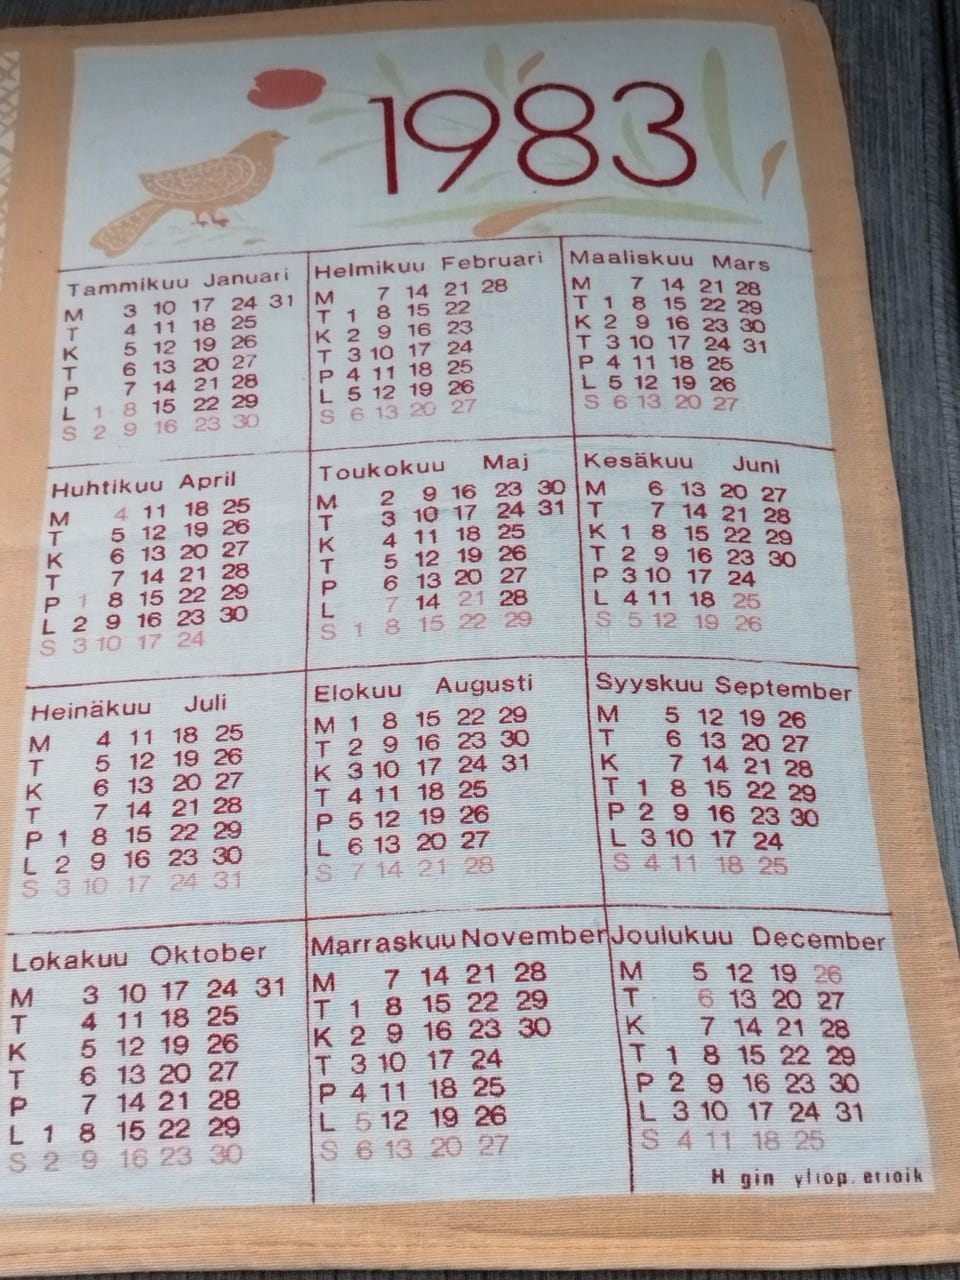 1983
Tammikuu Januari
M 3 10 17 24 31
T 4 11 18 25
K 5 12 19 26
T 6 13 20 27
P 7 14 21 28
L 1 8 15 22 29
S 2 9 16 23 30
Helmikuu Februari
M 7 14 21 28
T 1 8 15 22
K 2 9 16 23
T 3 10 17 24
P 4 11 18 25
L 5 12 19 26
S 6 13 20 27
Maaliskuu Mars
M 7 14 21 28
T 1 8 15 22 29
K 2 9 16 23 30
T 3 10 17 24 31
P 4 11 18 25
L 5 12 19 26
S 6 13 20 27
Huhtikuu April
M 4 11 18 25
T 5 12 19 26
K 6 13 20 27
T 7 14 21 28
P 1 8 15 22 29
L 2 9 16 23 30
S 3 10 17 24
Toukokuu Maj
M 2 9 16 23 30
T 3 10 17 24 31
K 4 11 18 25
T 5 12 19 26
P 6 13 20 27
L 7 14 21 28
S 1 8 15 22 29
Kesäkuu Juni
M 6 13 20 27
T 7 14 21 28
K 1 8 15 22 29
T 2 9 16 23 30
P 3 10 17 24
L 4 11 18 25
S 5 12 19 26
Heinäkuu Juli
M 4 11 18 25
T 5 12 19 26
K 6 13 20 27
T 7 14 21 28
P 1 8 15 22 29
L 2 9 16 23 30
S 3 10 17 24 31
Elokuu Augusti
M 1 8 15 22 29
T 2 9 16 23 30
K 3 10 17 24 31
T 4 11 18 25
P 5 12 19 26
L 6 13 20 27
S 7 14 21 28
Syyskuu September
M 5 12 19 26
T 6 13 20 27
K 7 14 21 28
T 1 8 15 22 29
P 2 9 16 23 30
L 3 10 17 24
S 4 11 18 25
Lokakuu Oktober
M 3 10 17 24 31
T 4 11 18 25
K 5 12 19 26
T 6 13 20 27
P 7 14 21 28
L 1 8 15 22 29
S 2 9 16 23 30
Marraskuu November
M 7 14 21 28
T 1 8 15 22 29
K 2 9 16 23 30
T 3 10 17 24
P 4 11 18 25
L 5 12 19 26
S 6 13 20 27
Joulukuu December
M 5 12 19 26
T 6 13 20 27
K 7 14 21 28
T 1 8 15 22 29
P 2 9 16 23 30
L 3 10 17 24 31
S 4 11 18 25
H gin